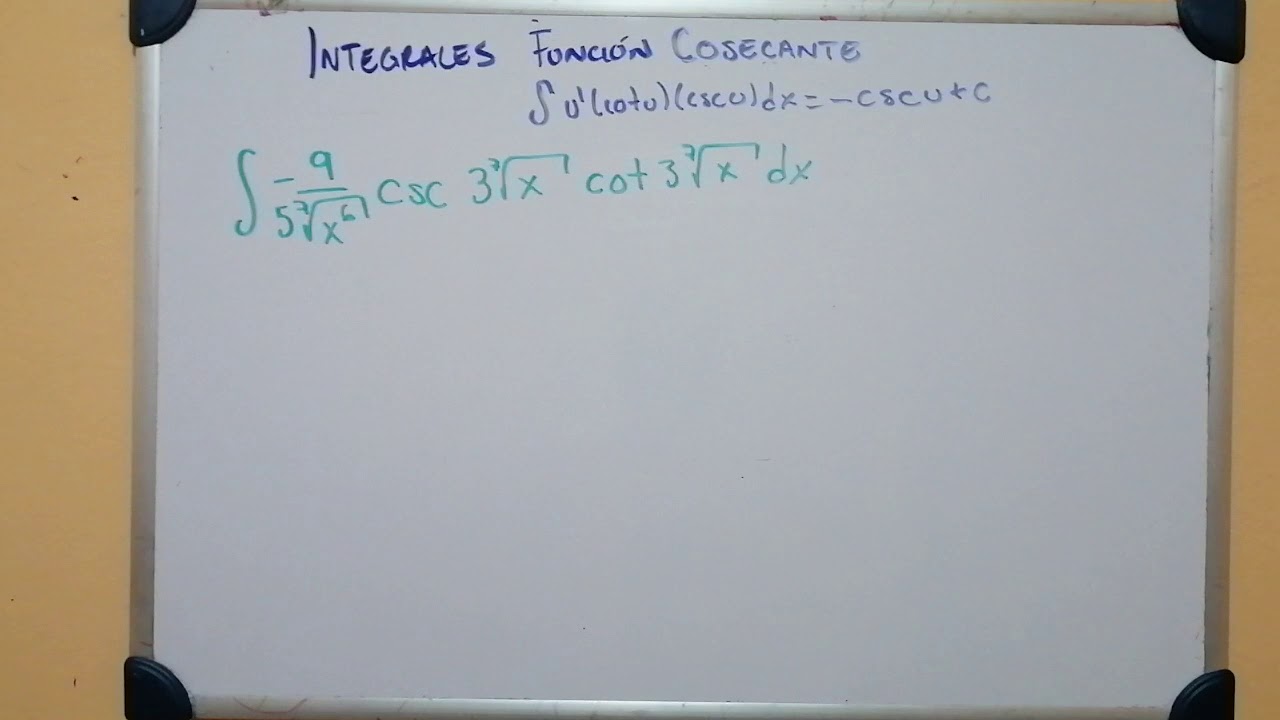 INTEGRALES FUNCIÓN COSECANTE
∫ u'(cotu)(cscu)dx = -cscu+c
∫ -9/(5⁷√x⁶) csc 3⁷√x cot 3⁷√x dx